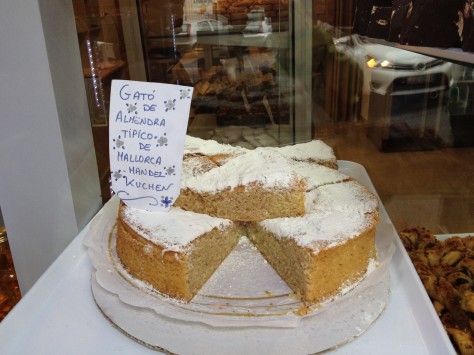 GATÓ
DE
ALMENDRA
TÍPICO
DE
MALLORCA
MANDEL
KUCHEN